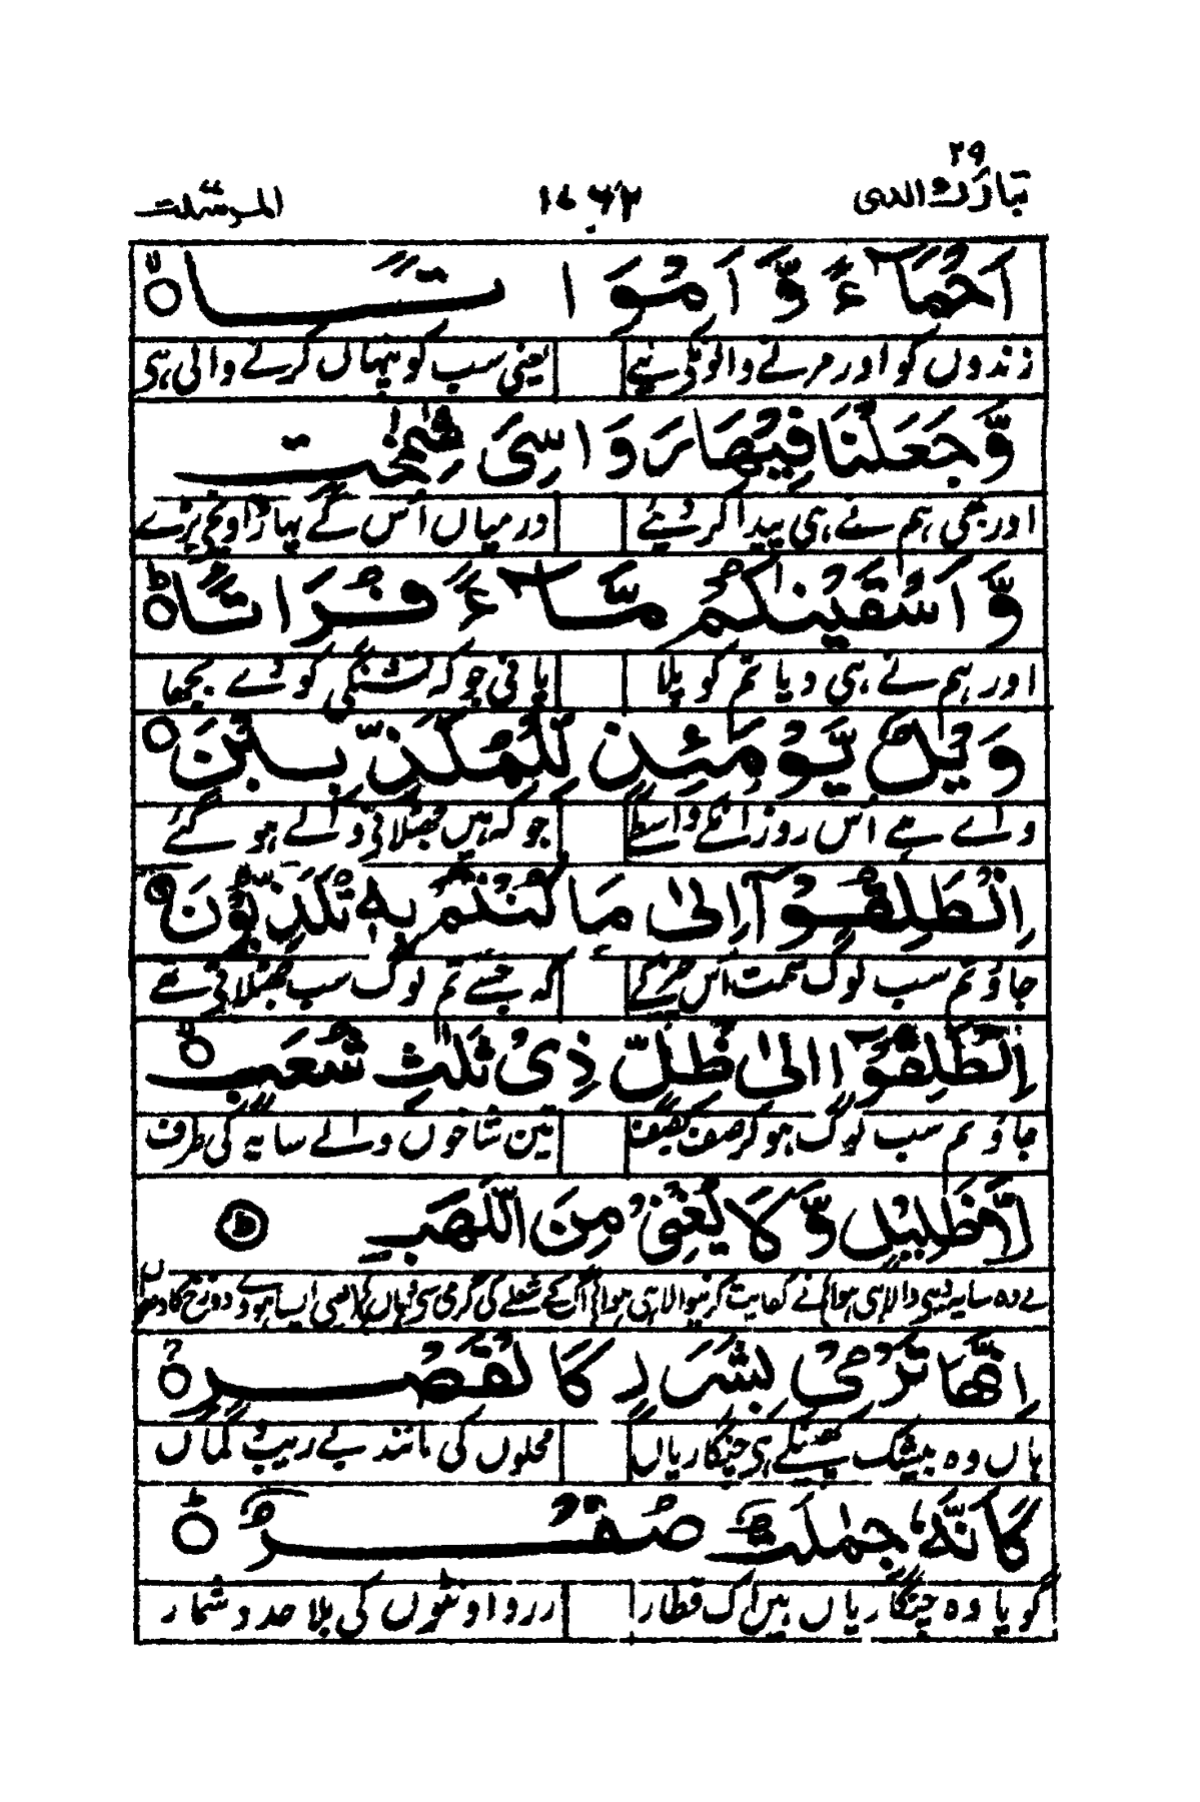 ۲۹
تبارک الذی ۱۰۶۲ المرسلت
اَحْيَآءً وَّ اَمْوَاتًا ۙ
زندوں کو اور مرنے والونکے لیے یعنی سب کو پنہاں کرنے والی ہی
وَّجَعَلْنَا فِيْهَا رَوَاسِیَ شٰمِخٰتٍ
اور بھی ہم نے ہی پیدا کر دیئے درمیاں اُس کے پہاڑ اونچے بڑے
وَّاَسْقَيْنٰكُمْ مَّآءً فُرَاتًا ؕ
اور ہم نے ہی دیا تم کو پلا پانی جو کہ تشنگی کو دے بجھا
وَيْلٌ يَّوْمَئِذٍ لِّلْمُكَذِّبِيْنَ ۝
واے ہے اُس روز انکے واسطے جو کہ ہیں جھٹلانے والے ہو گئے
اِنْطَلِقُوْۤا اِلٰى مَا كُنْتُمْ بِهٖ تُكَذِّبُوْنَ ۝
جاؤ تم سب لوگ سمت اُس چیز کے کہ جسے تم لوگ سب جھٹلاتے تھے
اِنْطَلِقُوْۤا اِلٰى ظِلٍّ ذِیْ ثَلٰثِ شُعَبٍ ۙ
جاؤ تم سب لوگ ہو کر صف بصف تین شاخوں والے سایہ کی طرف
لَّا ظَلِيْلٍ وَّلَا يُغْنِیْ مِنَ اللَّهَبِ ؕ
نے وہ سایہ دینے والا ہی ہوا نے کفایت کرنیوالا ہی ہوا آگ کے شعلے کی گرمی سے وہاں ایسا ہووے دوزخ کا دھواں
اِنَّهَا تَرْمِیْ بِشَرَرٍ كَالْقَصْرِ ۚ
ہاں وہ بیشک پھینکے ہی چنگاریاں محلوں کی مانند بے ریب گماں
كَاَنَّهٗ جِمٰلَتٌ صُفْرٌ ؕ
گویا وہ چنگاریاں ہیں اک قطار زرد اونٹوں کی بلا حد و شمار